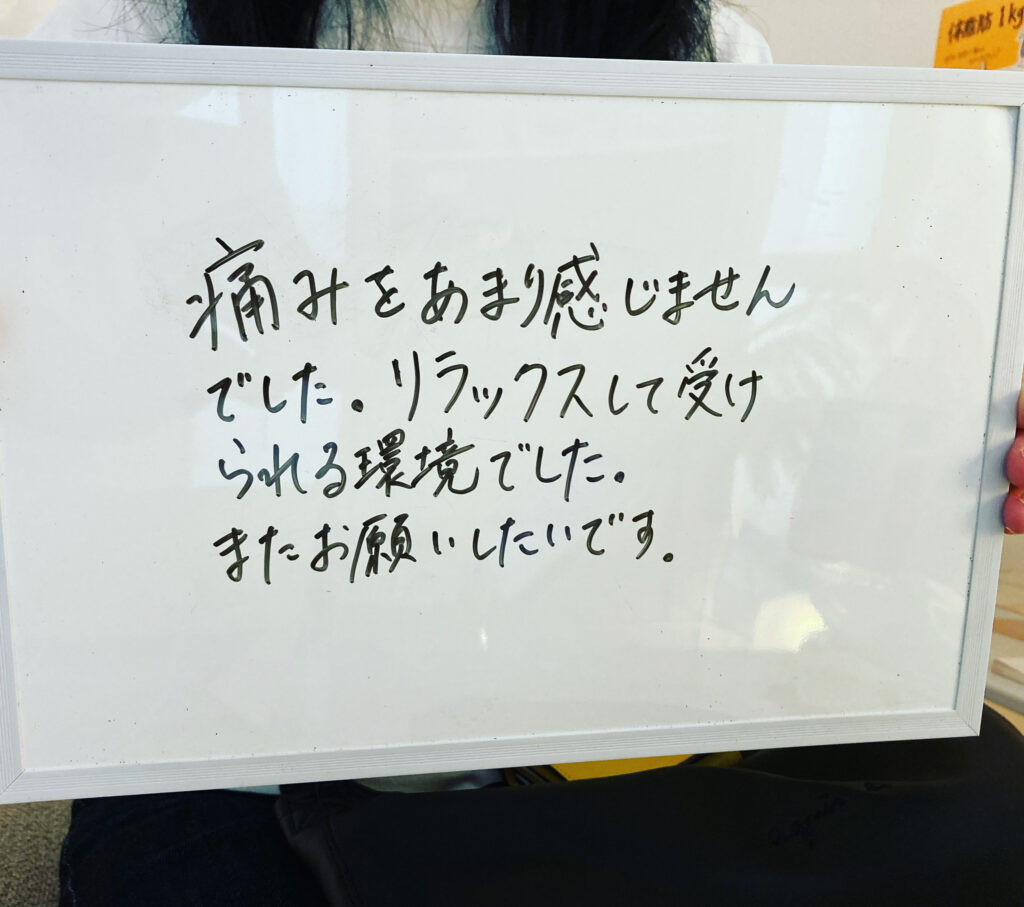 体脂肪 1kg
痛みをあまり感じません
でした。リラックスして受け
られる環境でした。
またお願いしたいです。